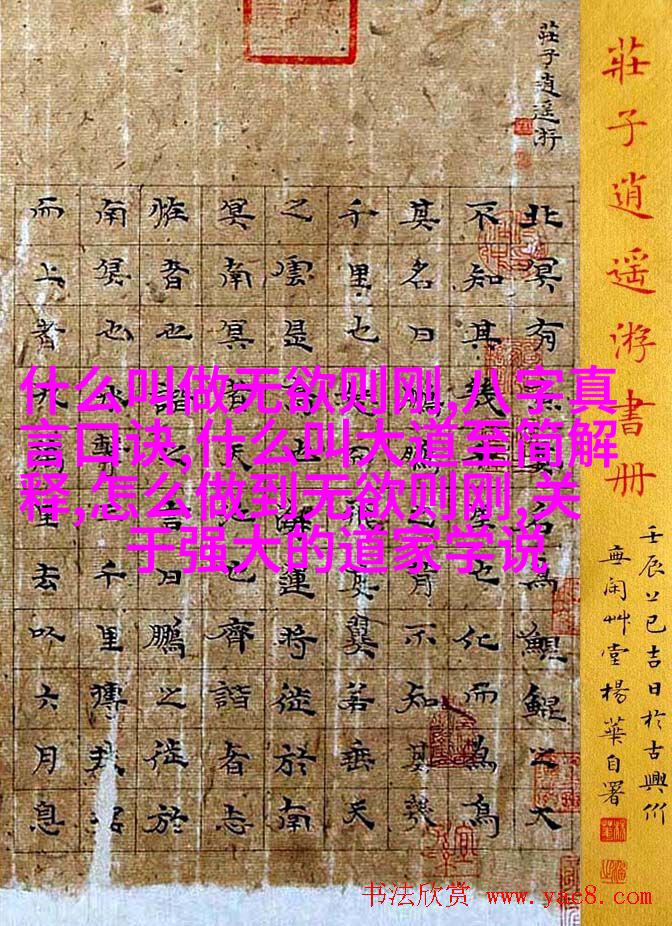 什么叫做无欲则刚,八字真
言口诀,什么叫大道至简解
释,怎么做到无欲则刚,关
于强大的道家学说
莊子逍遥游書册
壬辰上巳吉日於古興州
無闲艸堂楊華自署
莊子逍遥游
北冥有魚其名為鯤鯤之大
不知其幾千里也化而為鳥
其名曰鵬鵬之背不知其幾
千里也怒而飛其翼若垂天
之雲是鳥也海運將徙於南
冥南冥者天池也齊諧者志
怪者也諧之言曰鵬之徙於
南冥也水擊三千里摶扶搖
而上者九萬里去以六月息
书法欣赏 www.yac8.com